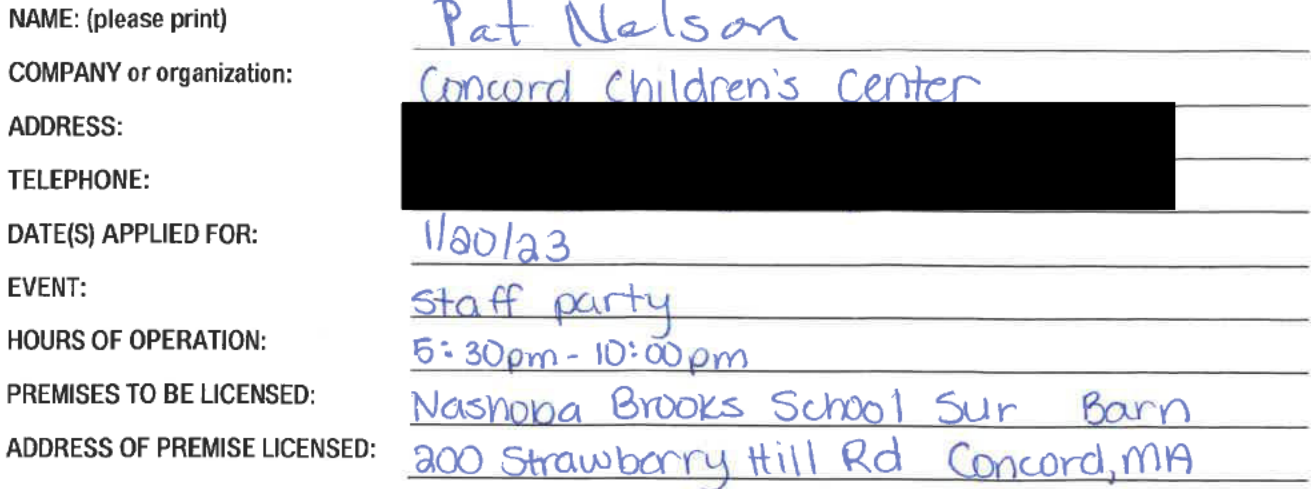 NAME: (please print) Pat Nelson
COMPANY or organization: Concord Children's Center
ADDRESS:
TELEPHONE:
DATE(S) APPLIED FOR: 1/20/23
EVENT: staff party
HOURS OF OPERATION: 5:30pm - 10:00pm
PREMISES TO BE LICENSED: Nashoba Brooks School Sur Barn
ADDRESS OF PREMISE LICENSED: 200 Strawberry Hill Rd Concord, MA